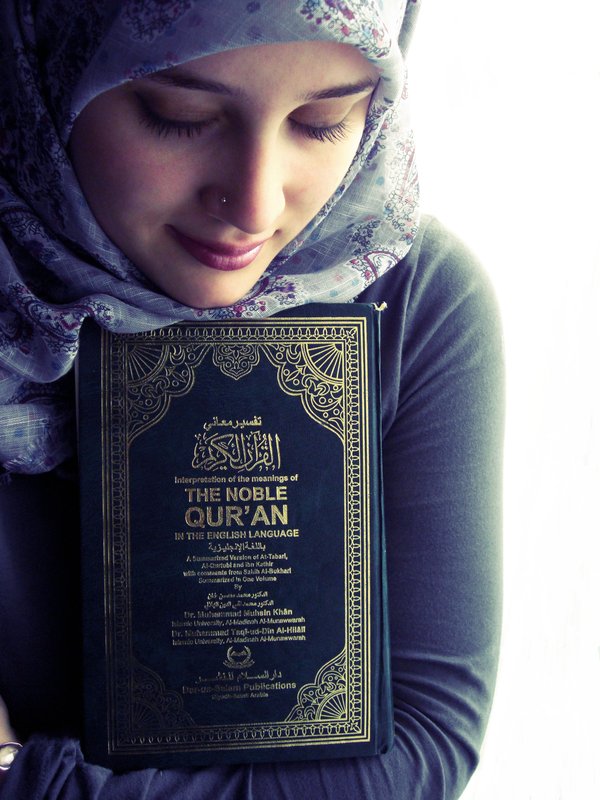 تفسير معاني
القرآن الكريم
Interpretation of the meanings of
THE NOBLE
QUR'AN
IN THE ENGLISH LANGUAGE
باللغة الإنجليزية
A Summarized Version of At-Tabari,
Al-Qurtubi and Ibn Kathir
with comments from Sahih Al-Bukhari
Summarized in One Volume
By
الدكتور محمد محسن خان
الدكتور محمد تقي الدين الهلالي
Dr. Muhammad Muhsin Khân
Islamic University, Al-Madinah Al-Munawwarah
Dr. Muhammad Taqî-ud-Dîn Al-Hilâlî
Islamic University, Al-Madinah Al-Munawwarah
دار السلام للنشر
Dar-us-Salam Publications
Riyadh-Saudi Arabia